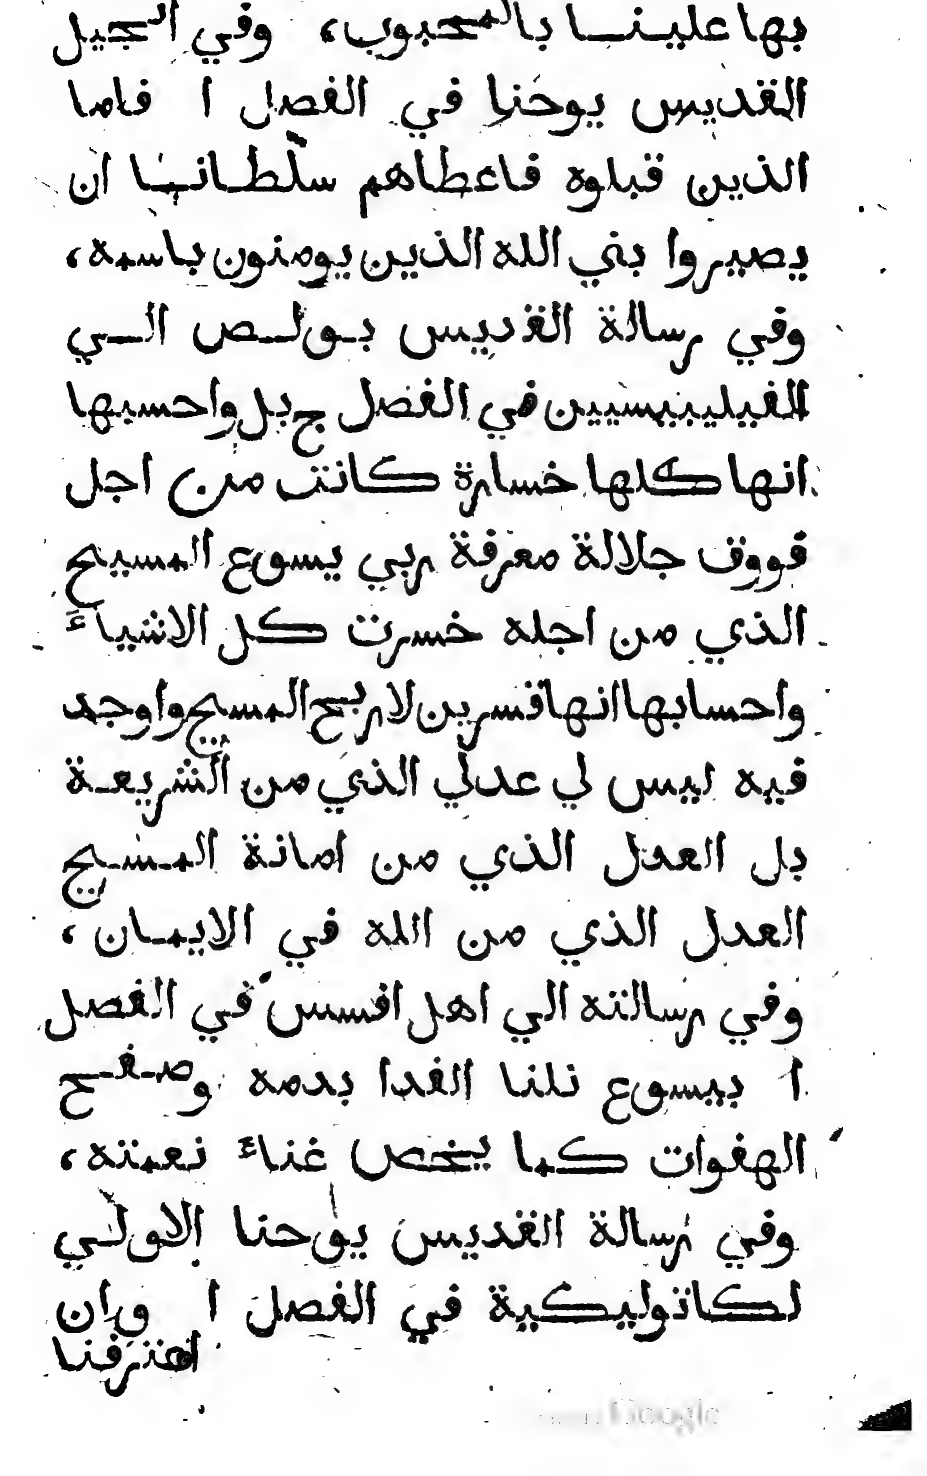 بها علينا بالمحبوب، وفي انجيل
القديس يوحنا في الفصل ا فاما
الذين قبلوه فاعطاهم سلطانا ان
يصيروا بني الله الذين يومنون باسمه،
وفي رسالة القديس بولص الي
الفيليبيسيين في الفصل ج بل واحسبها
انها كلها خسارة كانت من اجل
فووق جلالة معرفة ربي يسوع المسيح
الذي من اجله خسرت كل الاشياء
واحسابها انها قسرين لاربح المسيح واوجد
فيه ليس لي عدلي الذي من الشريعة
بل العدل الذي من امانة المسيح
العدل الذي من الله في الايمان،
وفي رسالته الي اهل افسس في الفصل
ا بيسوع نلنا الفدا بدمه وصفح
الهفوات كما يخص غناء نعمته،
وفي رسالة القديس يوحنا الاولي
لكاتوليكية في الفصل ا وان
اعترفنا
Google